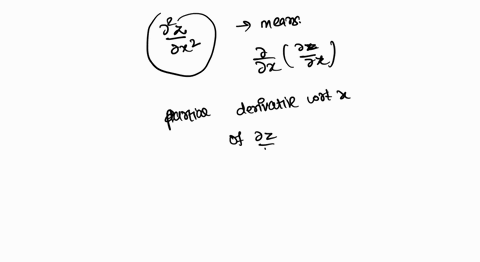 ∂²z/∂x² → means
∂/∂x (∂z/∂x)
partial derivative wrt x
of ∂z